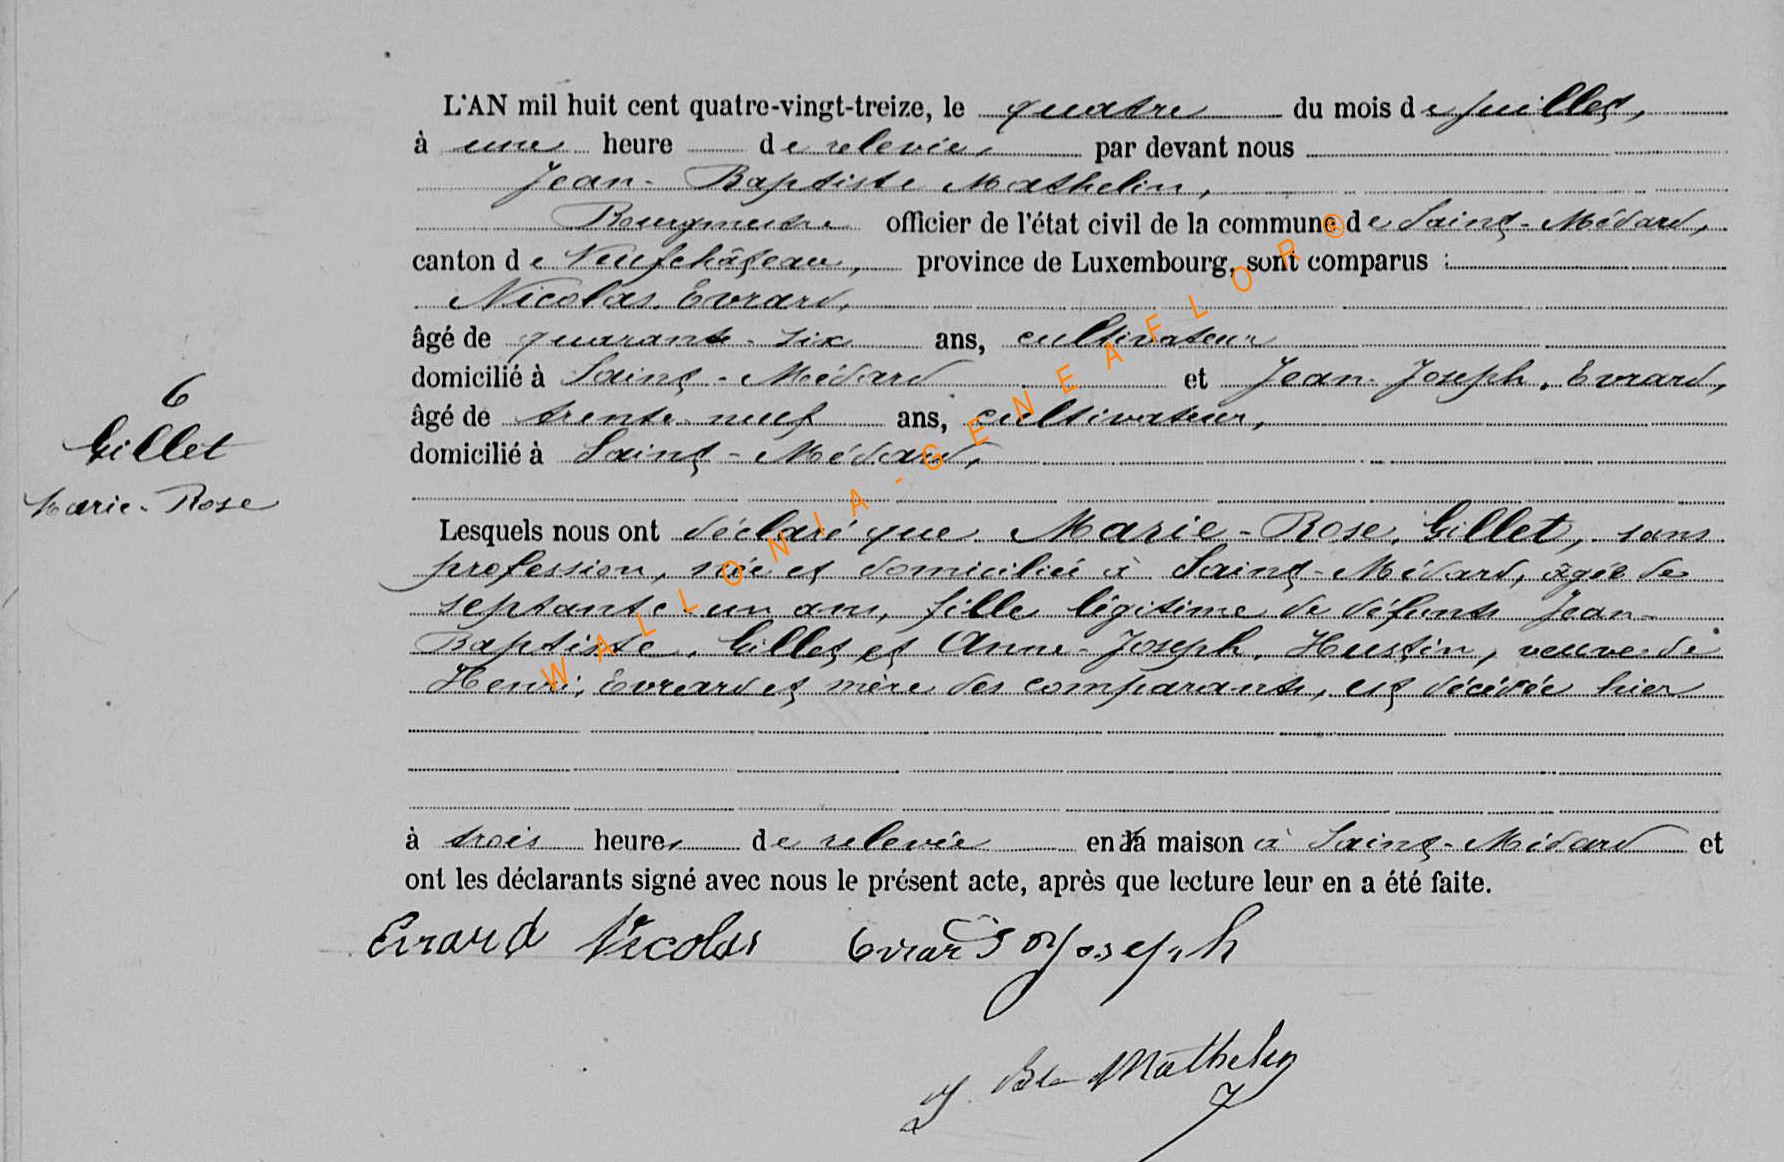 L'AN mil huit cent quatre-vingt-treize, le quatre du mois de juillet,
à une heure de relevée, par devant nous
Jean-Baptiste Mathelin,
Bourgmestre officier de l'état civil de la commune de Saint-Médard,
canton de Neufchâteau, province de Luxembourg, sont comparus :
Nicolas, Evrard,
âgé de quarante-six ans, cultivateur
domicilié à Saint-Médard et Jean-Joseph, Evrard,
âgé de trente-neuf ans, cultivateur,
domicilié à Saint-Médard,
6
Gillet
Marie-Rose
Lesquels nous ont déclaré que Marie-Rose, Gillet, sans
profession, née et domiciliée à Saint-Médard, âgée de
septante-un ans, fille légitime de défunts Jean-
Baptiste, Gillet et Anne-Joseph, Hustin, veuve de
Henri, Evrard et mère des comparants, est décédée hier
à trois heures de relevée en sa maison à Saint-Médard et
ont les déclarants signé avec nous le présent acte, après que lecture leur en a été faite.
Evrard Nicolas Evrard J Joseph
J. Bte Mathelin
WALLONIA-GENEAFLOR®